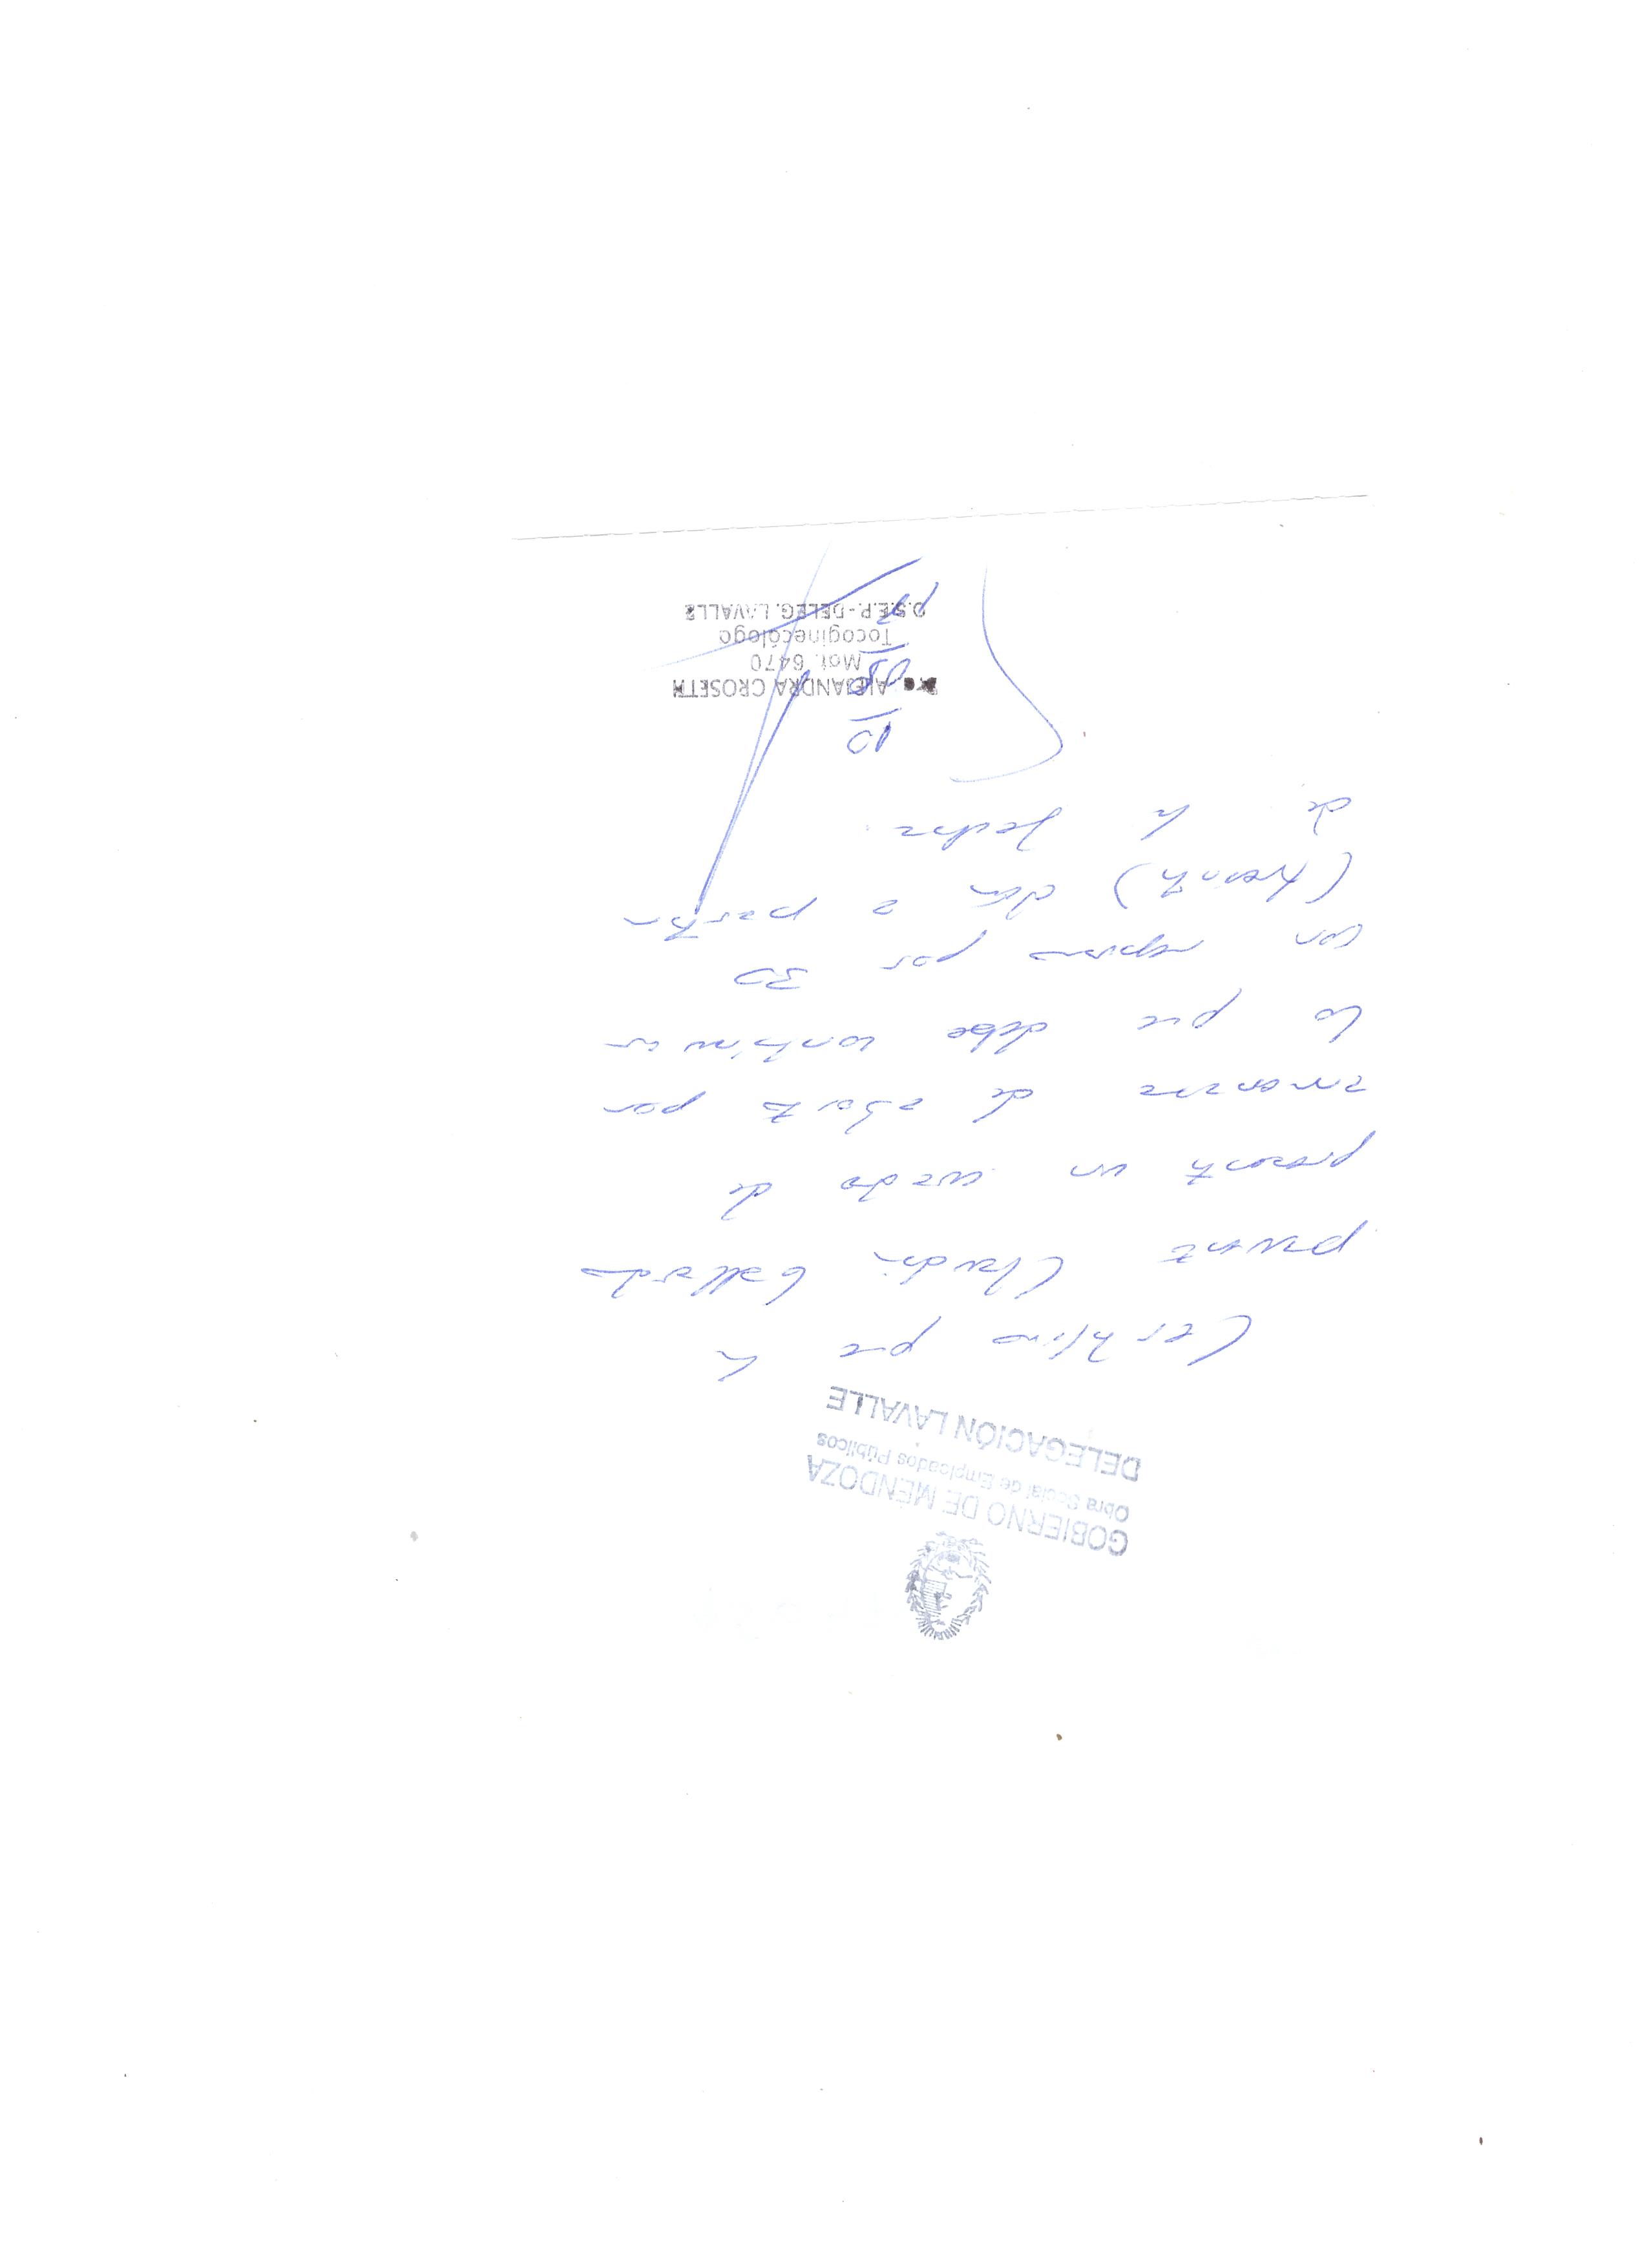 GOBIERNO DE MENDOZA
Obra Social de Empleados Públicos
DELEGACIÓN LAVALLE
Certifico que la
paciente Claudia Gallardo
presenta un cuadro de
amenaza de aborto por
lo que debe continuar
con reposo por 30
(treinta) días a partir
de la fecha.
10
05
Dra. ALEJANDRA CROSETTI
Mat. 6470
Tocoginecólogo
O.S.E.P.-DELEG. LAVALLE